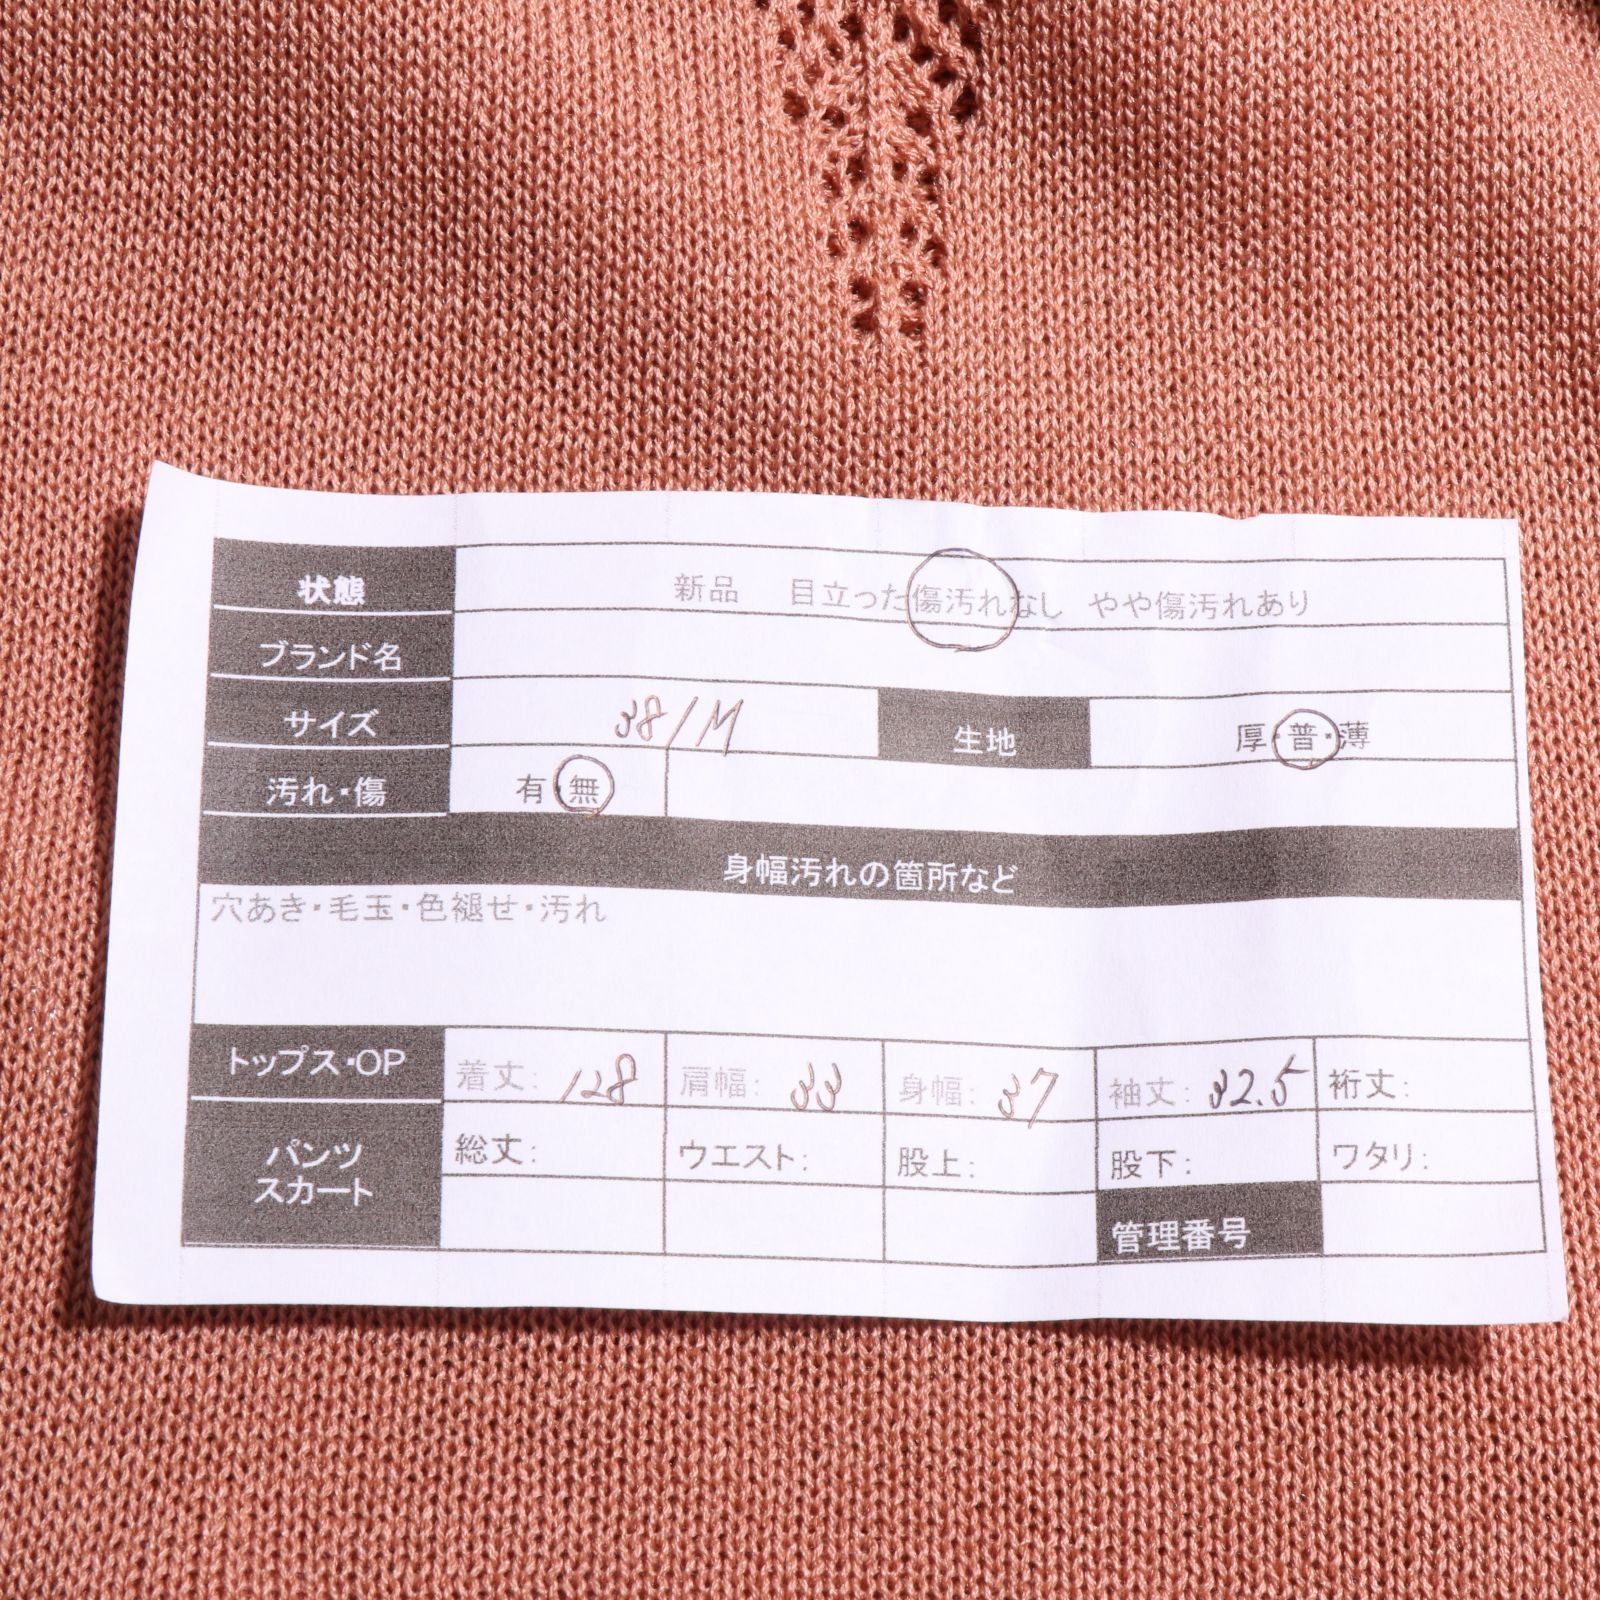 状態 新品 目立った傷汚れなし やや傷汚れあり
ブランド名
サイズ 38/M 生地 厚・普・薄
汚れ・傷 有・無
身幅汚れの箇所など
穴あき・毛玉・色褪せ・汚れ
トップス・OP 着丈: 128 肩幅: 33 身幅: 37 袖丈: 32.5 裄丈:
パンツ
スカート
総丈: ウエスト: 股上: 股下: ワタリ:
管理番号